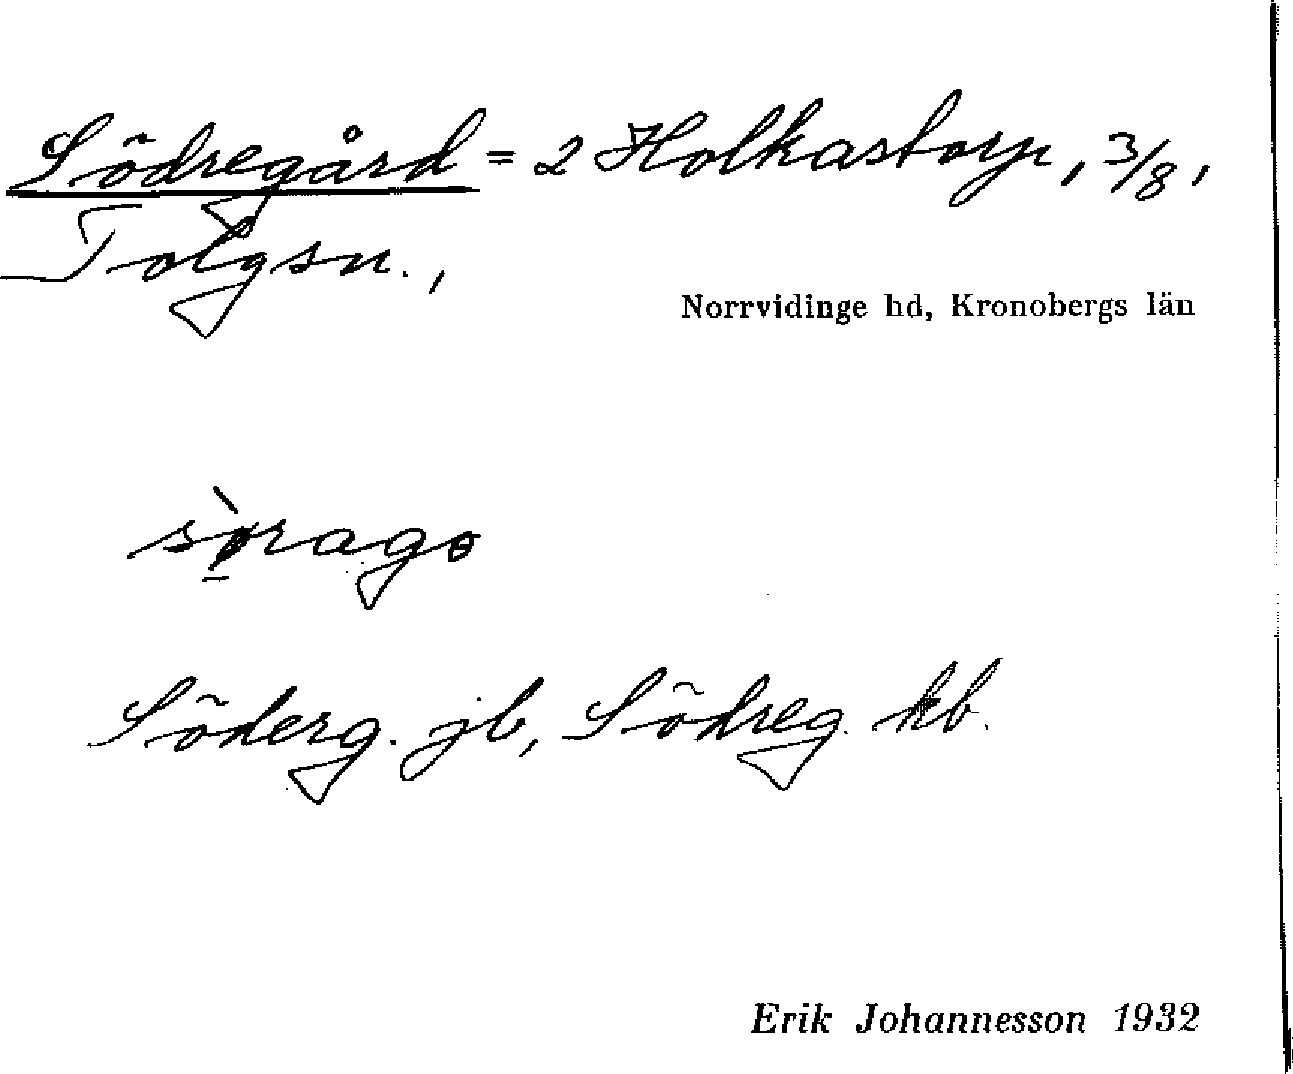 Södregård = 2 Holkastorp, 3/8,
Tolgsn.,
Norrvidinge hd, Kronobergs län
Söderg. jb, Södreg. kb.
Erik Johannesson 1932